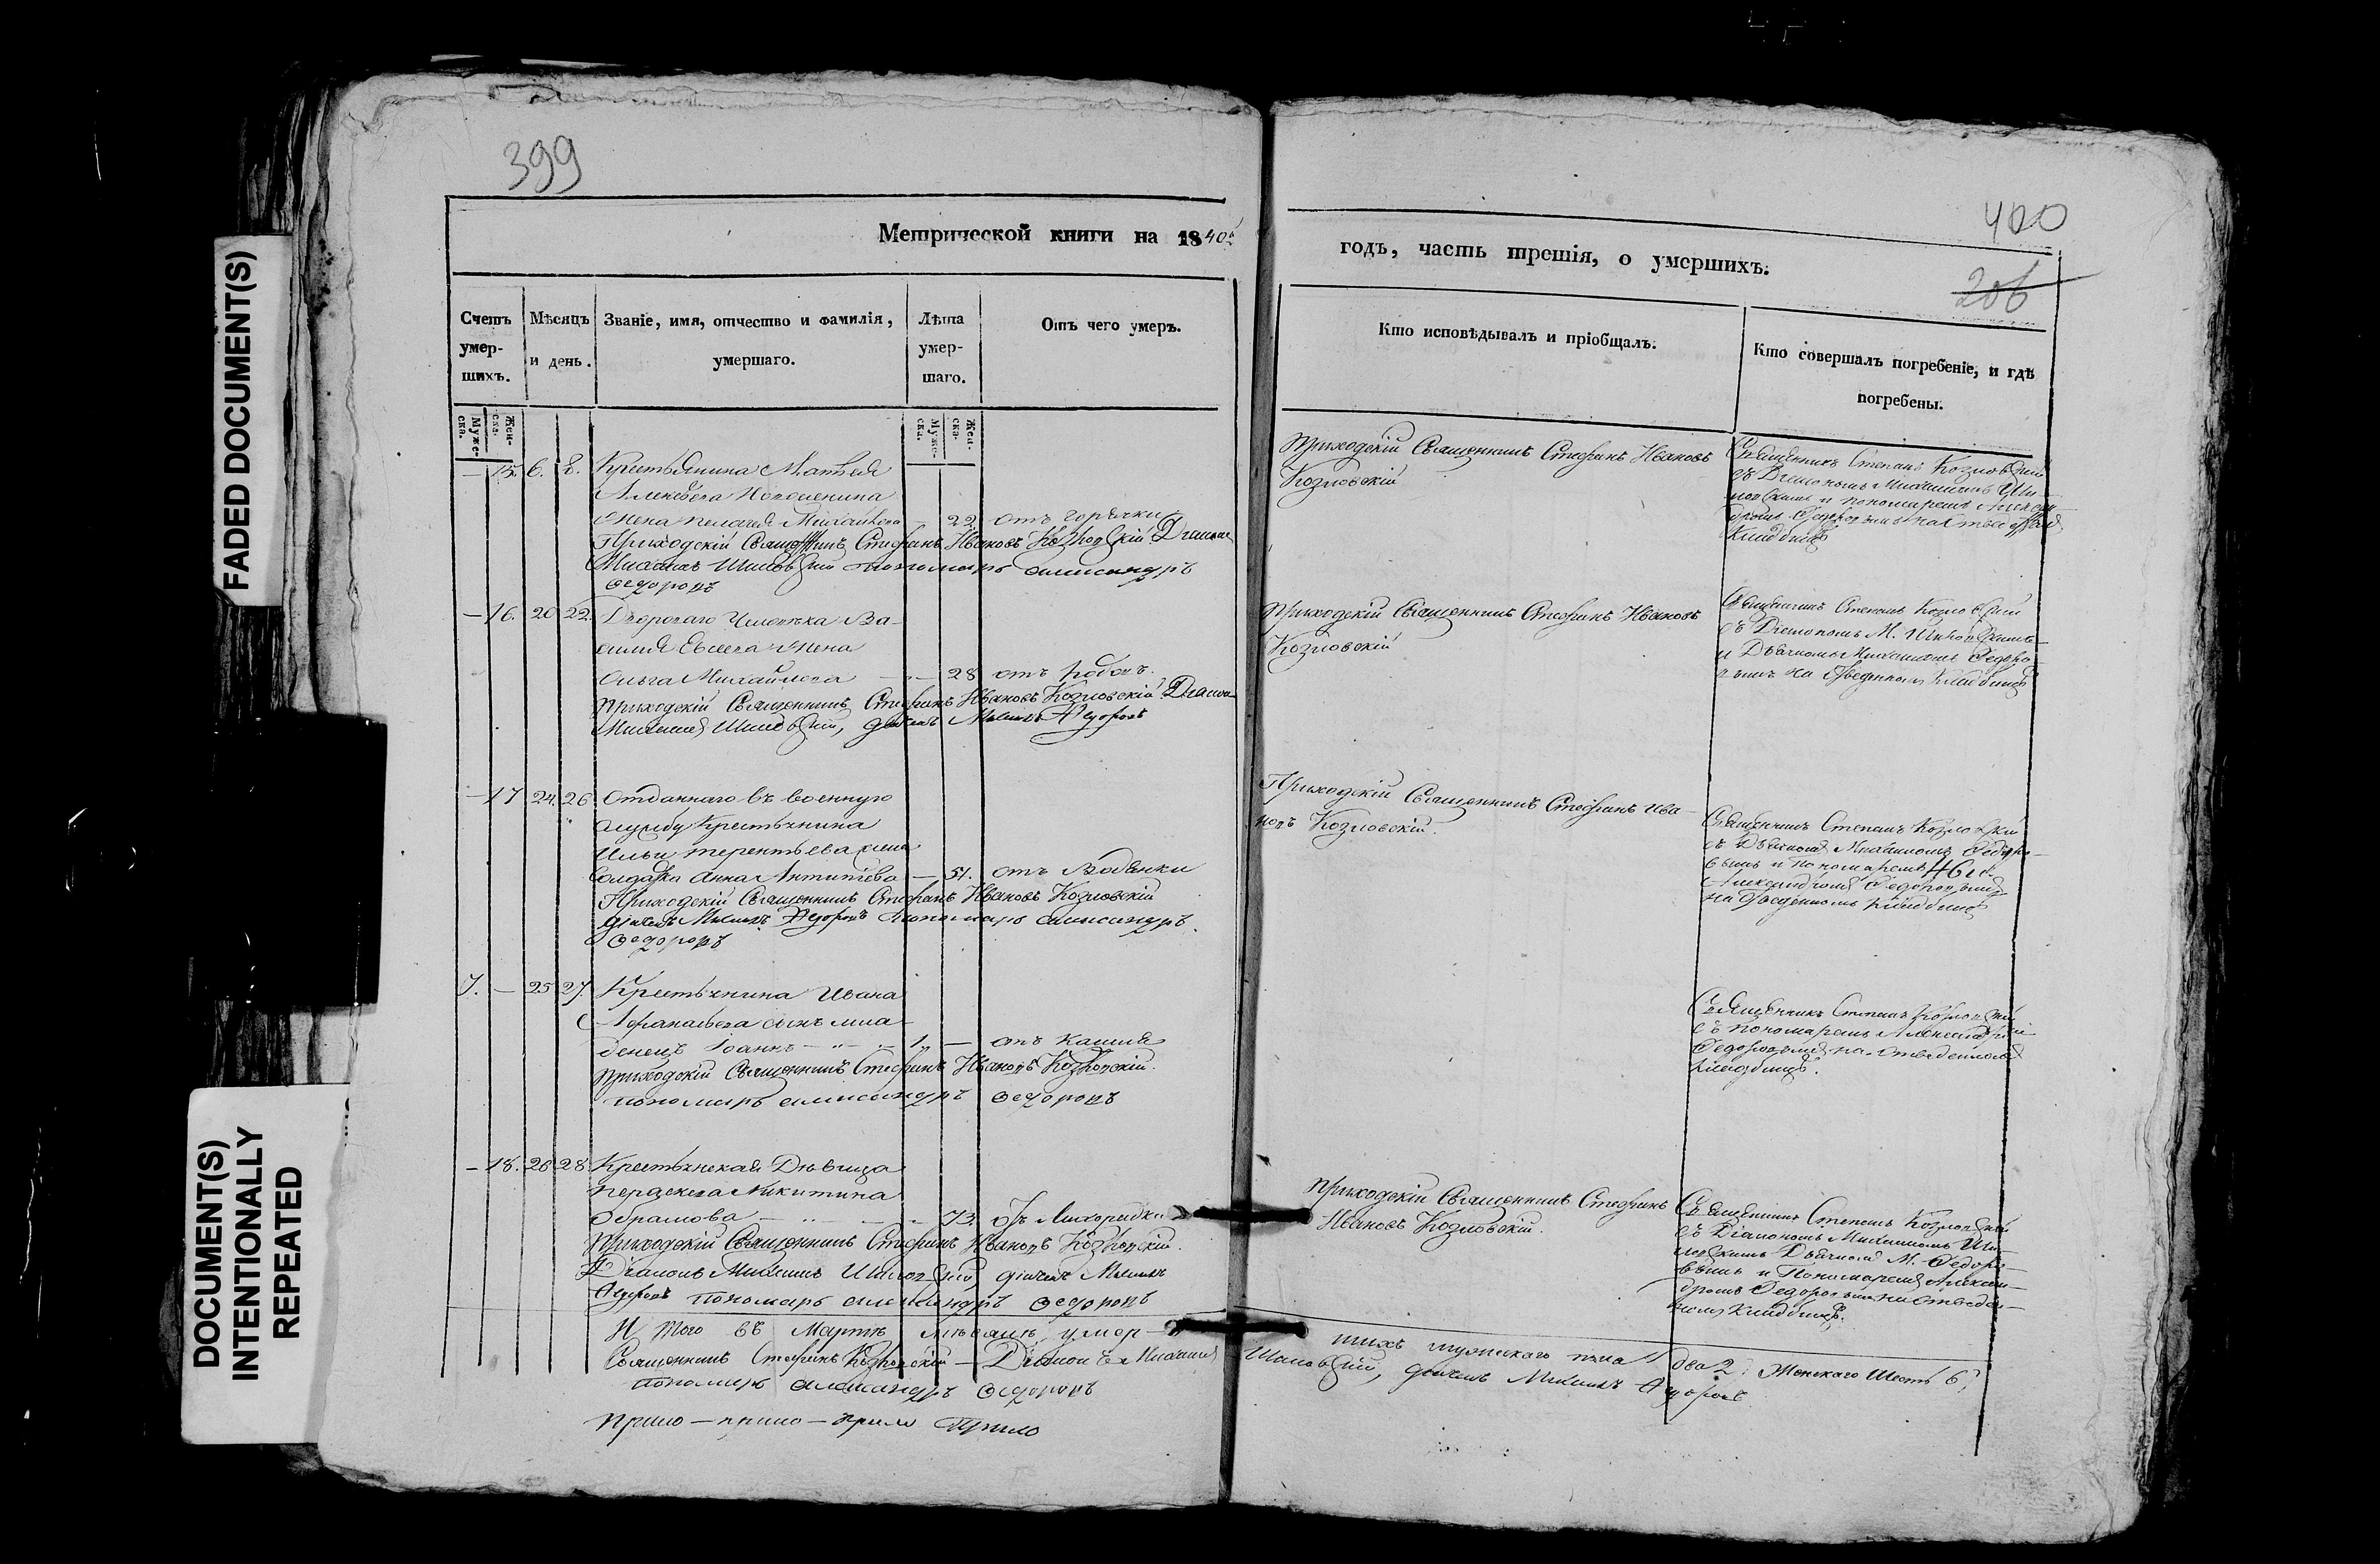 399
Метрической книги на 1840й
Счетъ умер-шихъ.
Мѣсяцъ и день.
Званіе, имя, отчество и фамилія, умершаго.
Лѣта умер-шаго.
Отъ чего умеръ.
Муже-ска.
Жен-ска.
Муже-ска.
Жен-ска.
— 15. 6. 8. Крестьянина Матвея
Алексѣева
жена Пелагея Михайлова — 22. отъ горячки
Приходскій Священникъ Стефанъ Ивановъ Козловскій Діаконъ
Михаилъ пономарь Александръ
Федоровъ
— 16. 20 22. Двороваго Человѣка Ва-
силія Евсеева жена
Ольга Михайлова — 28 отъ родовъ.
Приходскій Священникъ Стефанъ Ивановъ Козловскій Діаконъ
Михаилъ дьячекъ Михаилъ Федоровъ
— 17 24. 26 Отданнаго въ военную
службу Крестьянина
Ильи Терентьева жена
Солдатка Анна Антипова — 51. отъ Водянки
Приходскій Священникъ Стефанъ Ивановъ Козловскій
дьячекъ Михаилъ Федоровъ пономарь Александръ
Федоровъ
7. — 25 27. Крестьянина Ивана
Афанасьева сынъ мла-
денецъ Іоаннъ — 1. — отъ кашля
Приходскій Священникъ Стефанъ Ивановъ Козловскій.
пономарь Александръ Федоровъ
— 18. 26 28. Крестьянская Дѣвица
Никитина
Абрамова — 73. отъ Лихорадки
Приходскій Священникъ Стефанъ Ивановъ Козловскій.
Діаконъ Михаилъ дьячекъ Михаилъ
Федоровъ пономарь Александръ Федоровъ
И того въ Мартѣ мѣсяцѣ умер-
Священникъ Стефанъ Козловскій — Діаконъ Михаилъ
пономарь Александръ Федоровъ
400
206
годъ, часть третія, о умершихъ.
Кто исповѣдывалъ и пріобщалъ.
Кто совершалъ погребеніе, и гдѣ погребены.
Приходскій Священникъ Стефанъ Ивановъ
Козловскій
Священникъ Степанъ Козловскій
съ Діакономъ Михаиломъ
и пономаремъ Алексан-
дромъ Федоровымъ на
Кладбищѣ
Приходскій Священникъ Стефанъ Ивановъ
Козловскій
Священникъ Степанъ Козловскій
съ Діакономъ М.
и Дьячкомъ Михаиломъ Федоро-
вымъ на Отведенномъ Кладбищѣ
Приходскій Священникъ Стефанъ Ива-
новъ Козловскій.
Священникъ Степанъ Козловскій
съ Дьячкомъ Михаиломъ Федоро-
вымъ и Пономаремъ
Александромъ Федоровымъ
на Отведенномъ кладбищѣ
Священникъ Степанъ Козловскій
съ пономаремъ Александромъ
Федоровымъ на Отведенномъ
кладбищѣ.
Приходскій Священникъ Стефанъ
Ивановъ Козловскій.
Священникъ Степанъ Козловскій
съ Діакономъ Михаиломъ
Дьячкомъ М. Федоро-
вымъ и Пономаремъ Алексан-
дромъ Федоровымъ на Отведен-
номъ Кладбищѣ.
шихъ мужескаго пола два 2, Женскаго Шесть 6,
дьячекъ Михаилъ Федоровъ